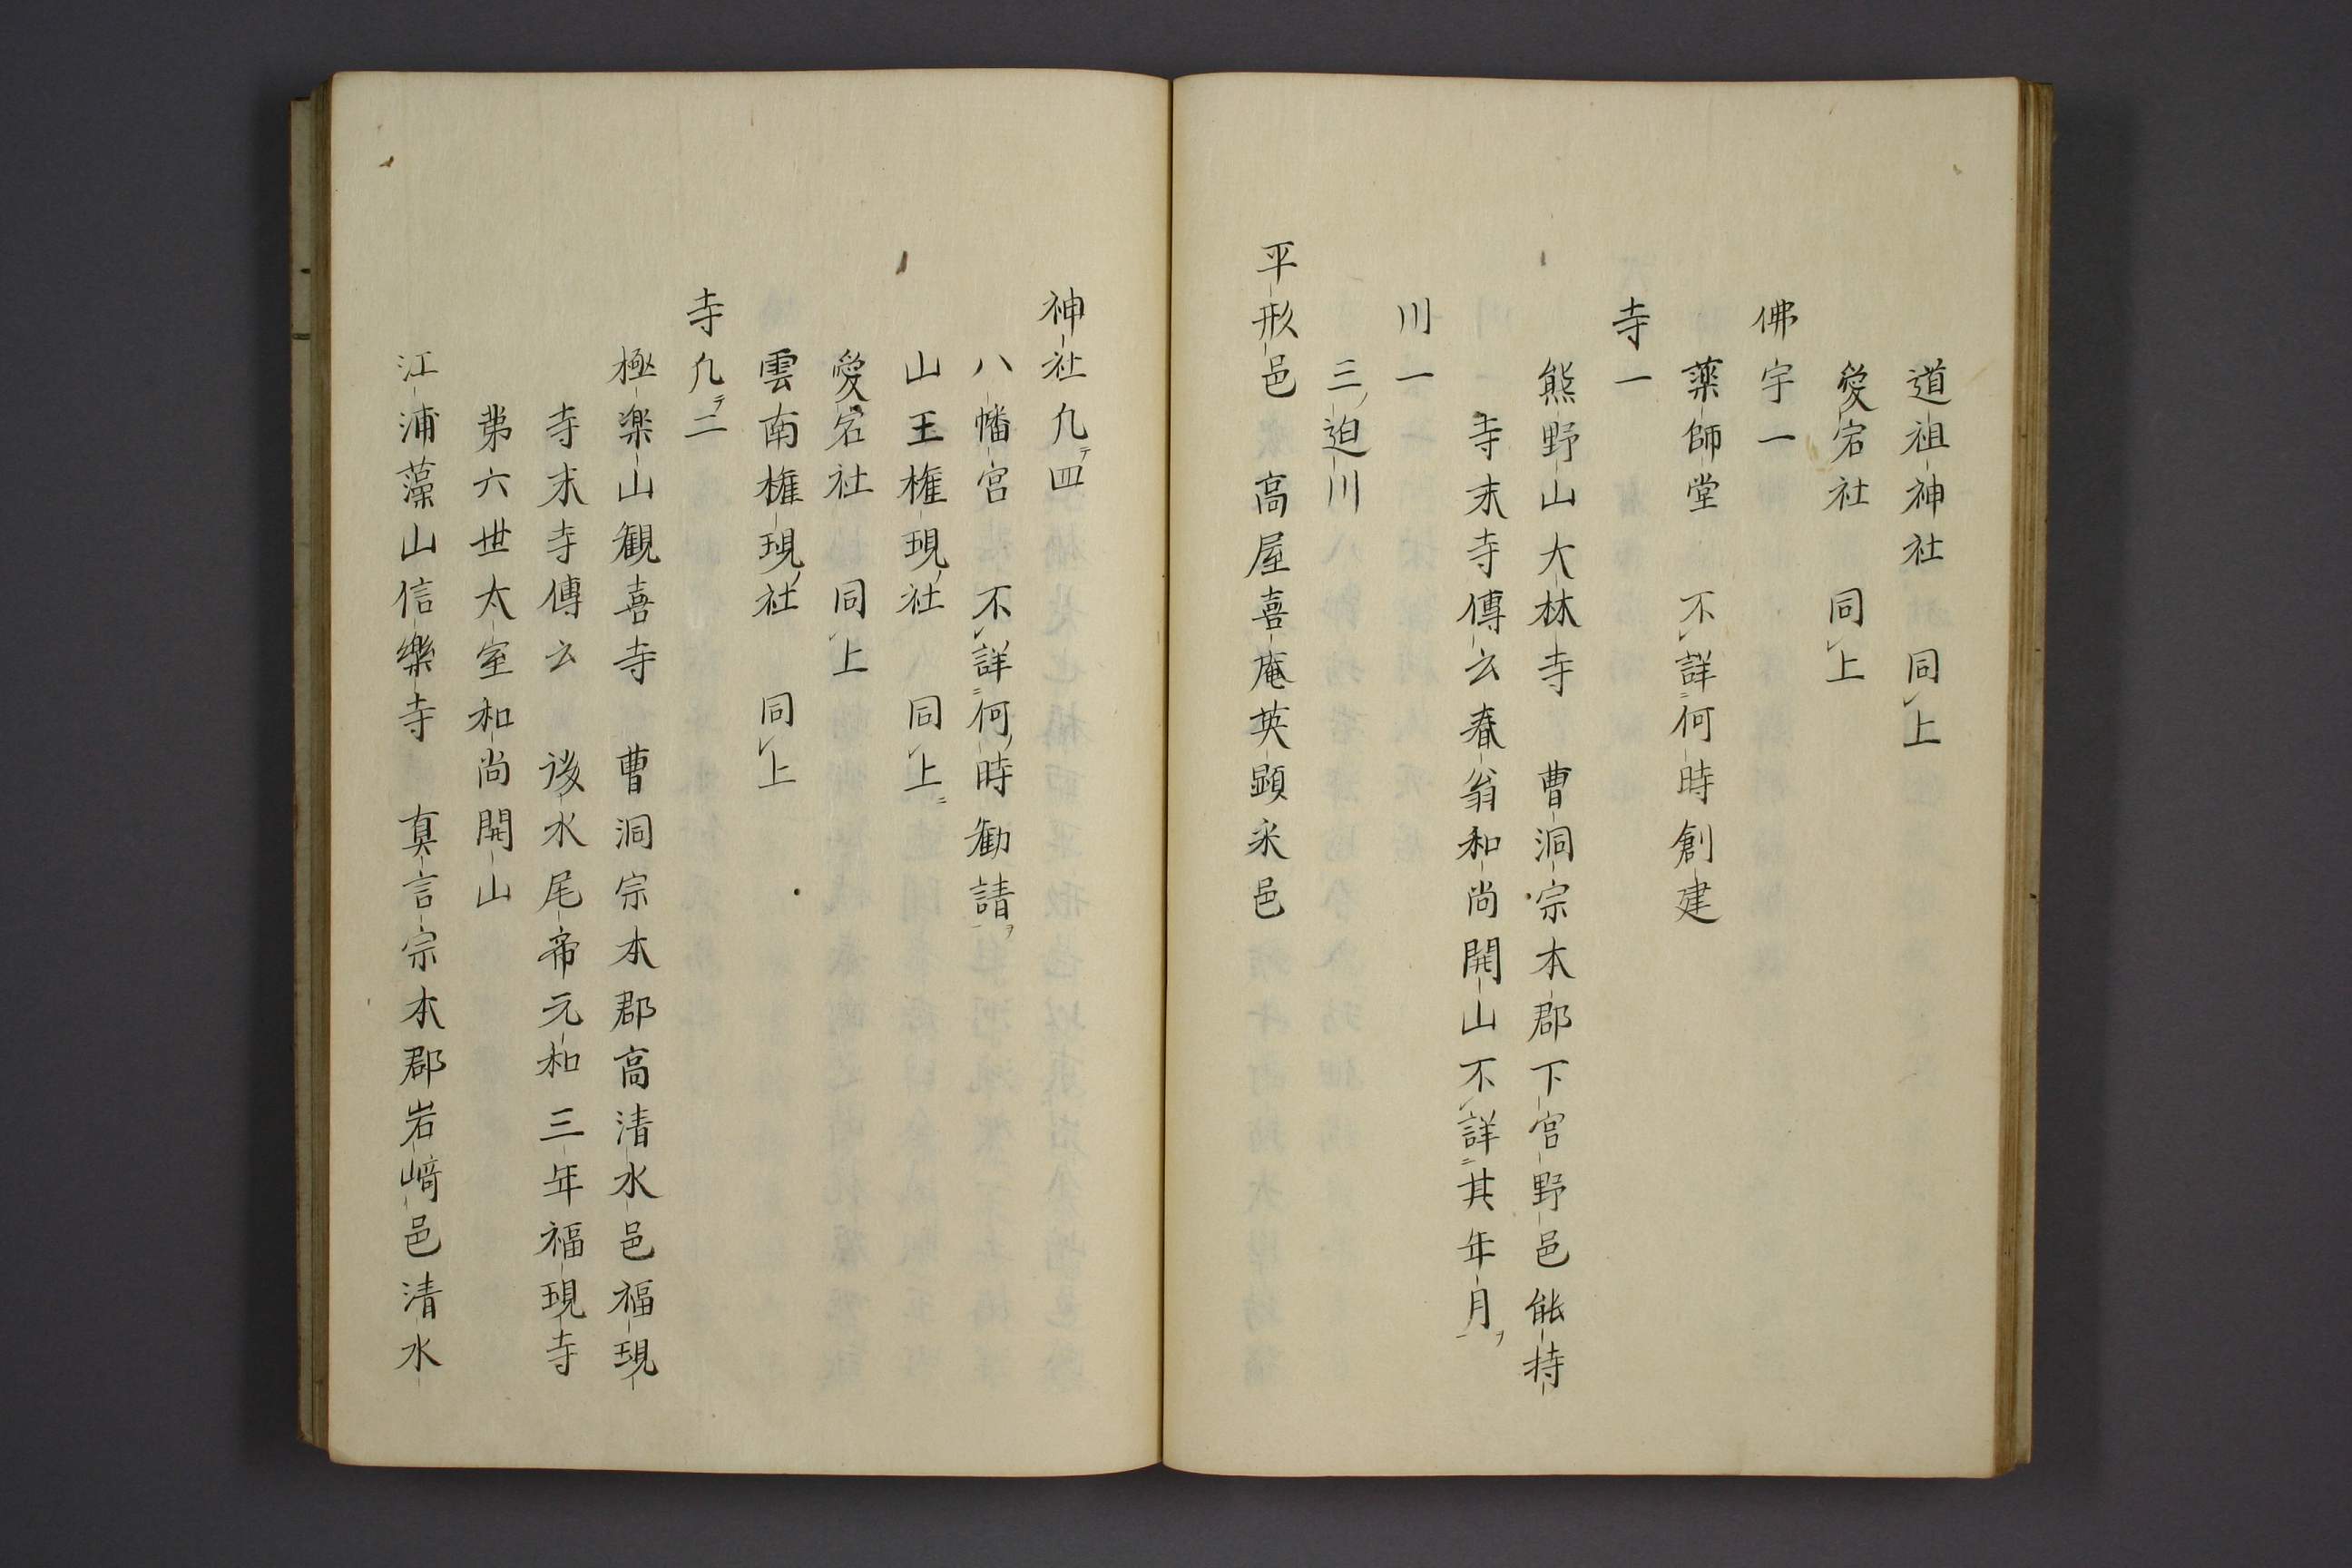 道祖神社　同上
愛宕社　同上
佛宇一
薬師堂　不詳何時創建
寺一
熊野山大林寺　曹洞宗本郡下宮野邑能持
寺末寺傳云春翁和尚開山不詳其年月
川一
三迫川
平形邑　高屋喜庵英顕采邑
神社凢四
八幡宮　不詳何時勧請
山王権現社　同上
愛宕社　同上
雲南権現社　同上
寺凢二
極楽山観喜寺　曹洞宗本郡高清水邑福現
寺末寺傳云　後水尾帝元和三年福現寺
第六世太室和尚開山
江浦藻山信樂寺　真言宗本郡岩﨑邑清水